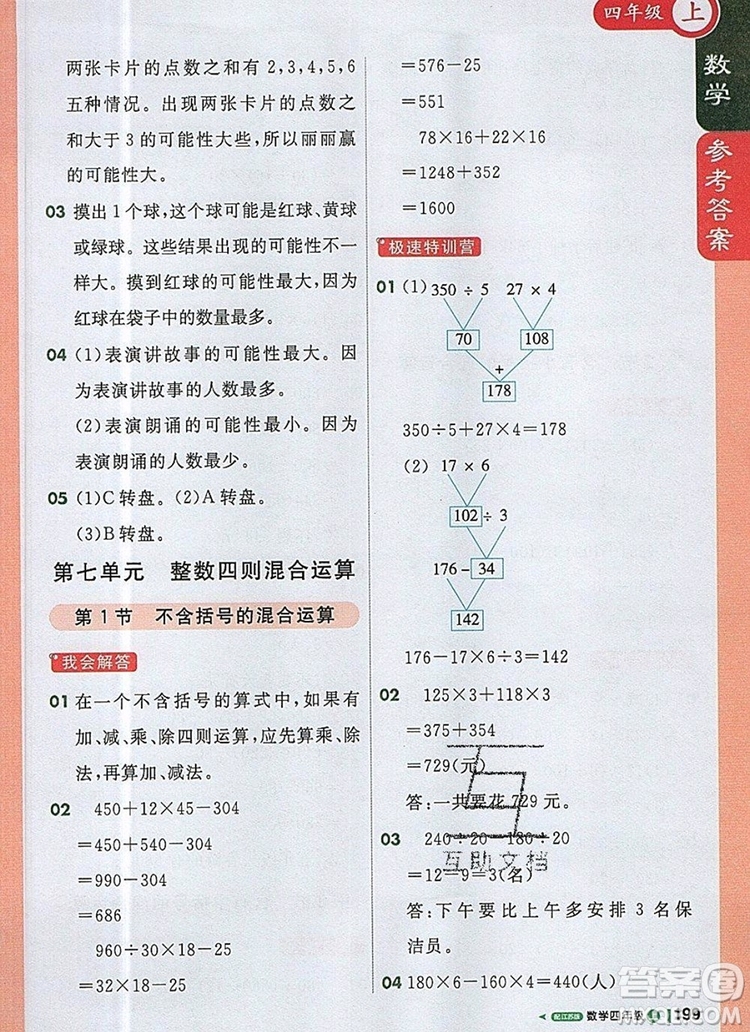 四年级 上
数学
参考答案
两张卡片的点数之和有 2,3,4,5,6
五种情况。出现两张卡片的点数之
和大于 3 的可能性大些,所以丽丽赢
的可能性大。
03 摸出 1 个球,这个球可能是红球、黄球
或绿球。这些结果出现的可能性不一
样大。摸到红球的可能性最大。因为
红球在袋子中的数量最多。
04 (1)表演讲故事的可能性最大。因
为表演讲故事的人数最多。
(2)表演朗诵的可能性最小。因为
表演朗诵的人数最少。
05 (1)C转盘。(2)A转盘。
(3)B转盘。
第七单元 整数四则混合运算
第 1 节 不含括号的混合运算
我会解答
01 在一个不含括号的算式中,如果有
加、减、乘、除四则运算,应先算乘、除
法,再算加、减法。
02 450+12×45-304
=450+540-304
=990-304
=686
960÷30×18-25
=32×18-25
=576-25
=551
78×16+22×16
=1248+352
=1600
极速特训营
01 (1) 350 ÷ 5 27 × 4
70 108
+
178
350÷5+27×4=178
(2) 17 × 6
102 ÷ 3
176 - 34
142
176-17×6÷3=142
02 125×3+118×3
=375+354
=729(元)
答:一共要花 729 元。
03 240÷20-180÷20
=12-9=3(名)
答:下午要比上午多安排 3 名保
洁员。
04 180×6-160×4=440(人)
互助文档
答案圈
配江苏版 数学四年级 上 199